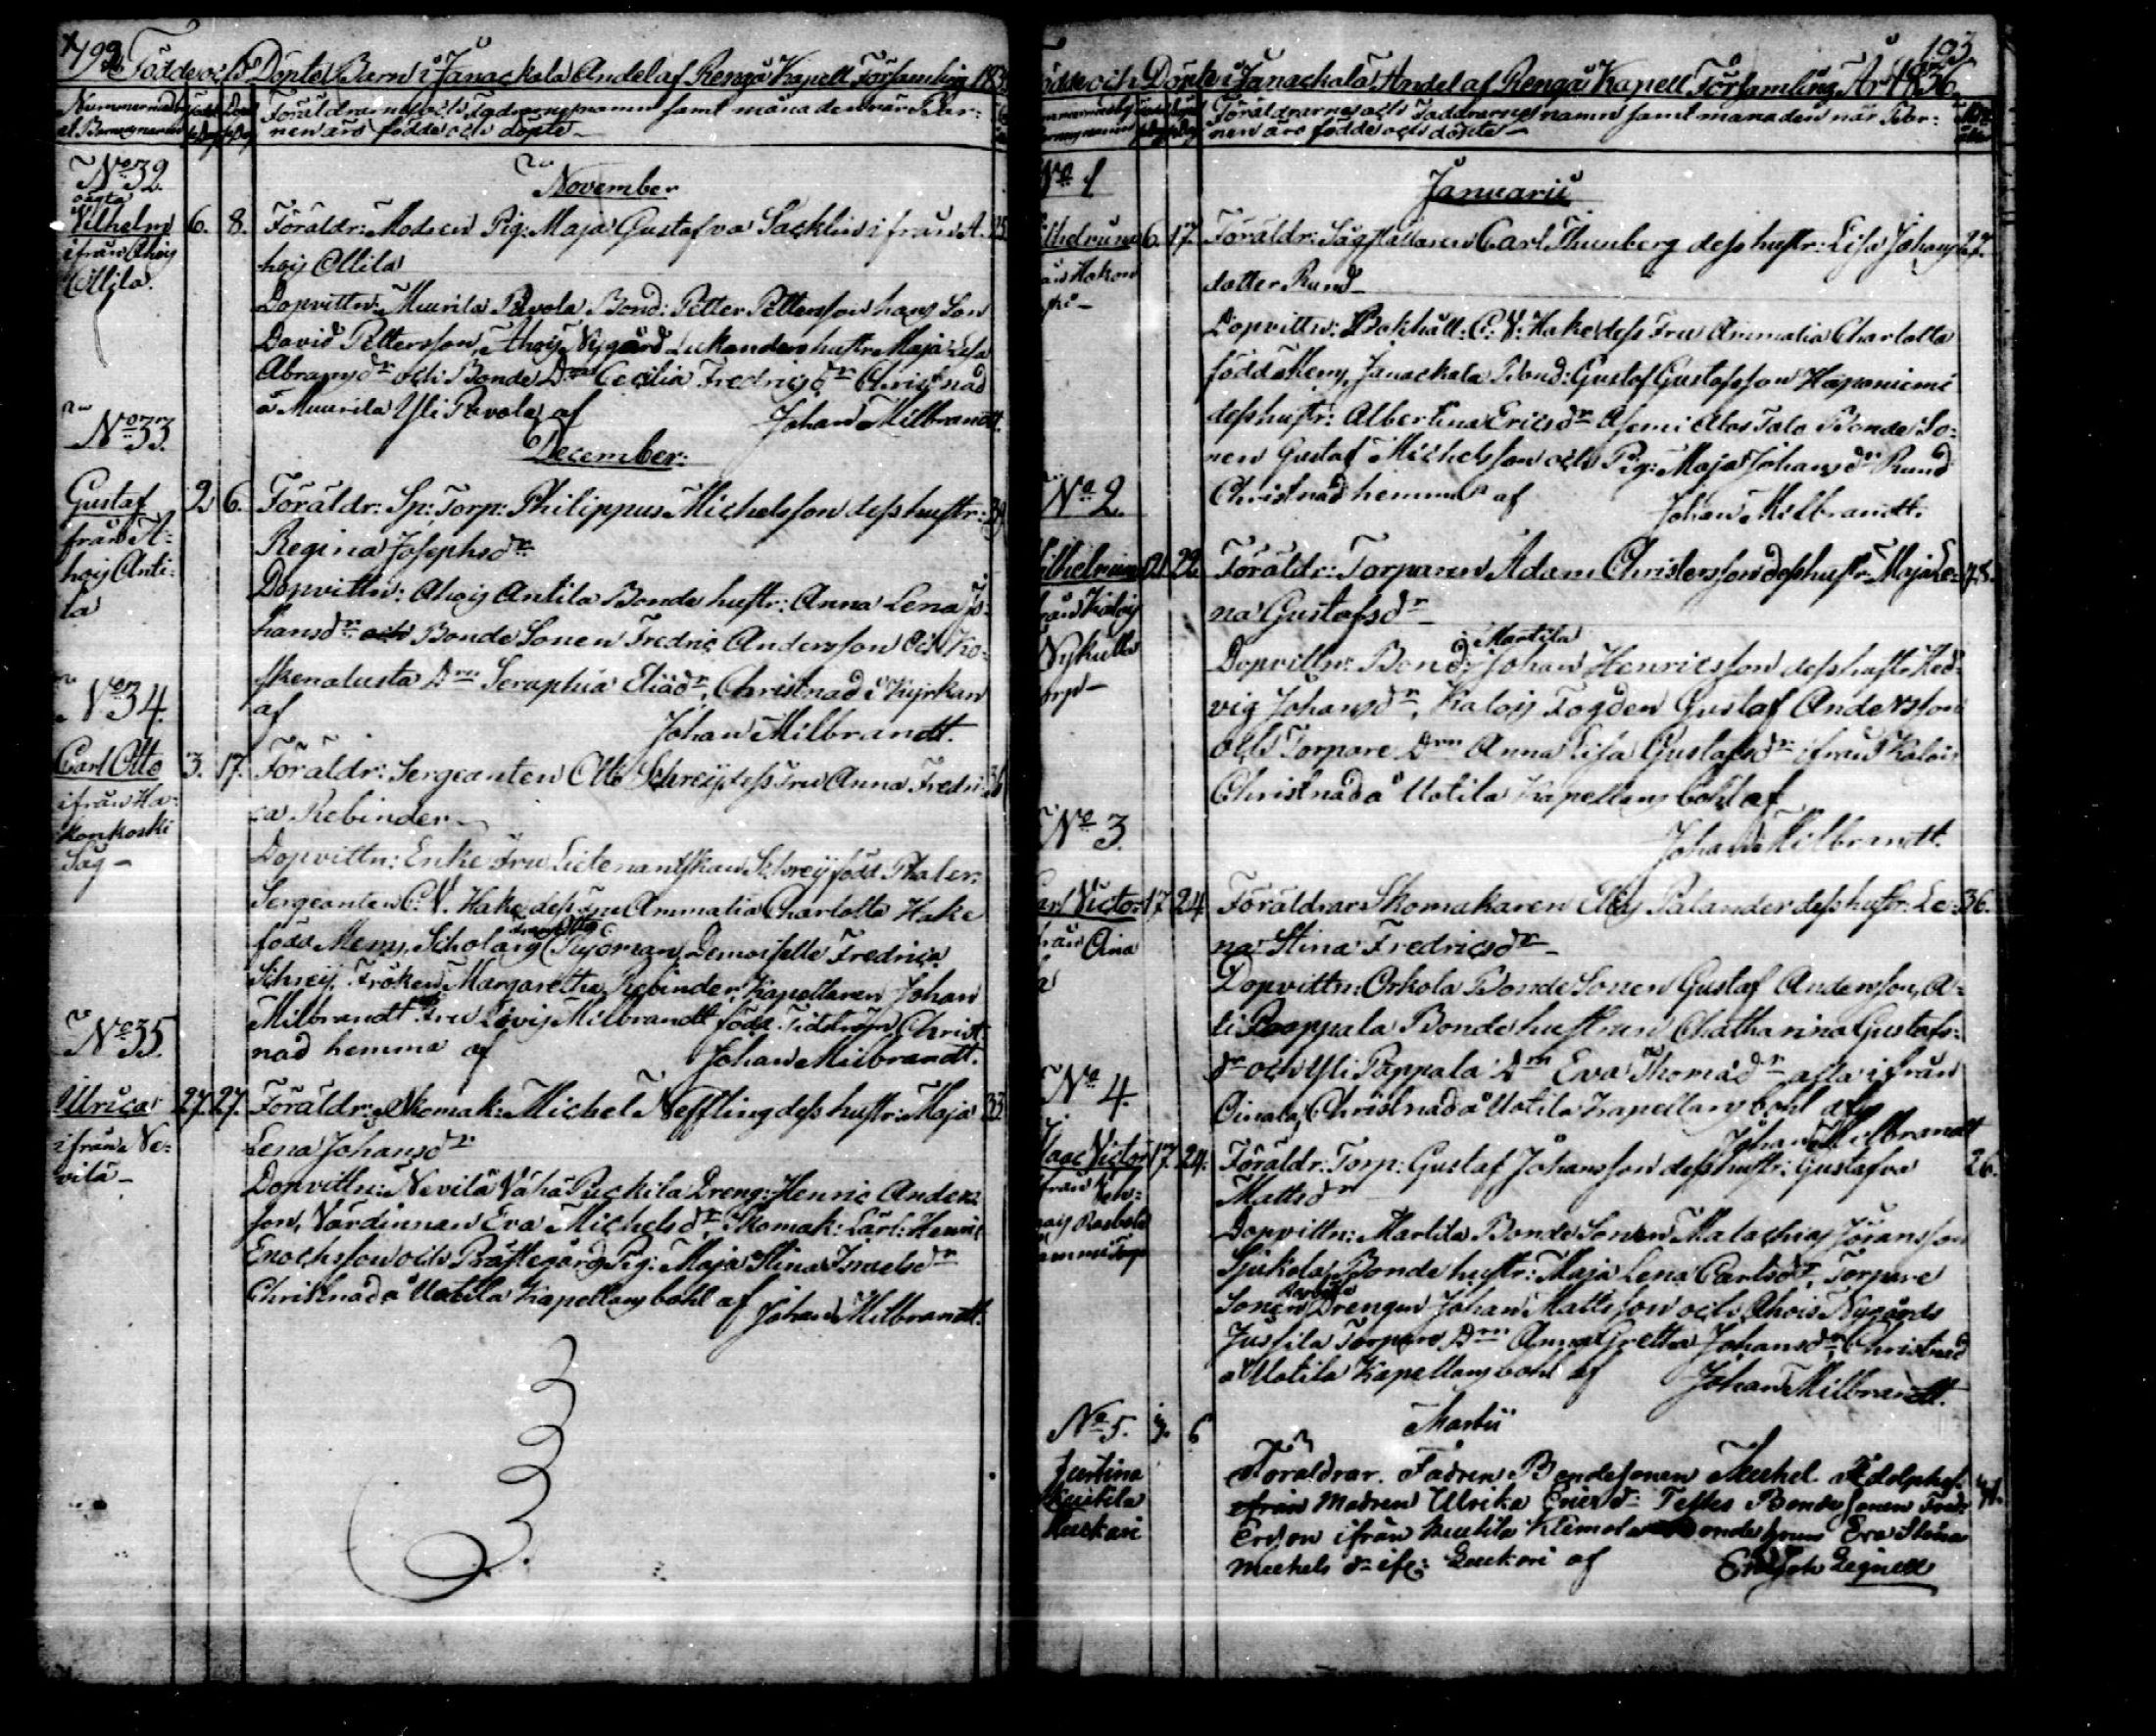 192. Födde och Döpte Barn i Janackala Andel af Rengå Kapell Församling 183
Föräldrarnes och Faddrarnes namn samt månaden när Bar-
nen äro födde och döpte
No 32
November
oägta
Vilhelm 6. 8. Föräldr: Modren Pig: Maja Gustafva Sacklin ifrån A- 25
ifrån Ahois
hois Ollila
Ollila.
Dopvittn: Muurila Pavola Bond: Petter Pettersson hans Son
David Pettersson, Ahois Nygård Lukanders hustr Maja Lisa
Abramsdr och Bonde Drn Cecilia Fredricsdr Christnad
å Muurila Yli Pavola af Johan Milbrandt.
No 33
December:
Gustaf 2 6. Föräldr: Sp: Torp: Philippus Michelsson dess hustr: 39
från A-
Regina Josephsdr
hois Anti-
la
Dopvittn: Ahois Antila Bonde hustr: Anna Lena Jo-
hansdr och Bonde Sonen Fredric Andersson och Ko-
skenalusta Drn Seraphia Eliædr, Christnad i Kyrkan
af Johan Milbrandt.
No 34.
Carl Otto 3. 17. Föräldr: Sergeanten Otto Schreij dess Fru Anna Fredri- 36
ifrån Ha-
ca Rebinder
konkoski
Såg
Dopvittn: Enke Fru Lieutenantskan Schreij född Thaler
Sergeanten C. V. Hake dess Fru Ammalia Charlotta Hake
född Meny, Scholaris Tujoman, Demoiselle Fredrica
Schreij, Fröken Margaretha Rebinder, Kapellanen Johan
Milbrandt Fru Lovis Milbrandt född Tidström, Christ-
nad hemma af Johan Milbrandt.
No 35.
Ulrica 27. 27. Föräldr: Skomak: Michel Neffling dess hustr: Maja 33
ifrån Ne-
Lena Johansdr
vilä
Dopvittn: Nevilä Vähä Puckila Dreng: Henric Anders-
son, Värdinnan Eva Michelsdr, Skomak: Lärl: Henric
Enochsson och Prästegårds Pig: Maja Stina Israelsdr
Christnad å Uotila Kapellans bohl af Johan Milbrandt.
193
Födde och Döpte i Janackala Andel af Rengå Kapell Församling År 1836.
Föräldrarnes och Faddrarnes namn samt månaden när Bar-
nen äro födde och döpte
No 1
Januarii
6. 17. Föräldr: Sågställaren Carl Thunberg dess hustr: Lisa Johans- 27.
dotter Rund
Dopvittn: Bokhåll: C. V. Hake dess Fru Ammalia Charlotta
född Meny, Janackala Bond: Gustaf Gustafsson Haponiemi
dess hustr: Albertina Ericsdr Asemi Alos Talo Bonde So-
nen Gustaf Michelsson och Pig: Maja Johansdr Rund
Christnad hemma af Johan Milbrandt.
No 2.
21 22 Föräldr: Torparen Adam Christersson dess hustr: Maja Le- 28.
na Gustafsdr
Martila
Dopvittn: Bond: Johan Henricsson dess hustr Hed-
vig Johansdr, Kalois Fogden Gustaf Andersson
och Torpare Drn Anna Lisa Gustafsdr ifrån Kalois
Christnad å Uotila Kapellans bohl af
Johan Milbrandt.
No 3.
Carl Victor 17 24 Föräldrar Skomakaren Elias Palander dess hustr: Le- 36.
na Stina Fredricsdr
Dopvittn: Orkola Bonde Sonen Gustaf Andersson, A-
li Pappala Bonde hustrun Chatharina Gustafs-
dr och Yli Pappala Drn Eva Thomædr alla ifrån
Oinala, Christnad å Uotila Kapellans bohl af
Johan Milbrandt
No 4.
Isaac Victor 17. 24. Föräldr: Torp: Gustaf Johansson dess hustr: Gustafva 26.
Mattsdr
Dopvittn: Martila Bonde Sonen Malachias Göransson
Sjukola Bonde hustr: Maja Lena Carlsdr, Torpare
Sonen Drengen Johan Mattsson och Ahois Nygårds
Jussila Torpare Drn Anna Gretha Johansdr, Christnad
å Uotila Kapellans bohl af Johan Milbrandt.
No 5. 6
Martii
Justina
Föräldrar. Fadren Bondesonen Michel Adolphs.
ifrån Modren Ulrika Ericsdr Testes Bonde Sonen Fred:
Ericson ifrån Klemola Bonde Eva Stina
Michelsdr ifr: af Er Joh Legnell